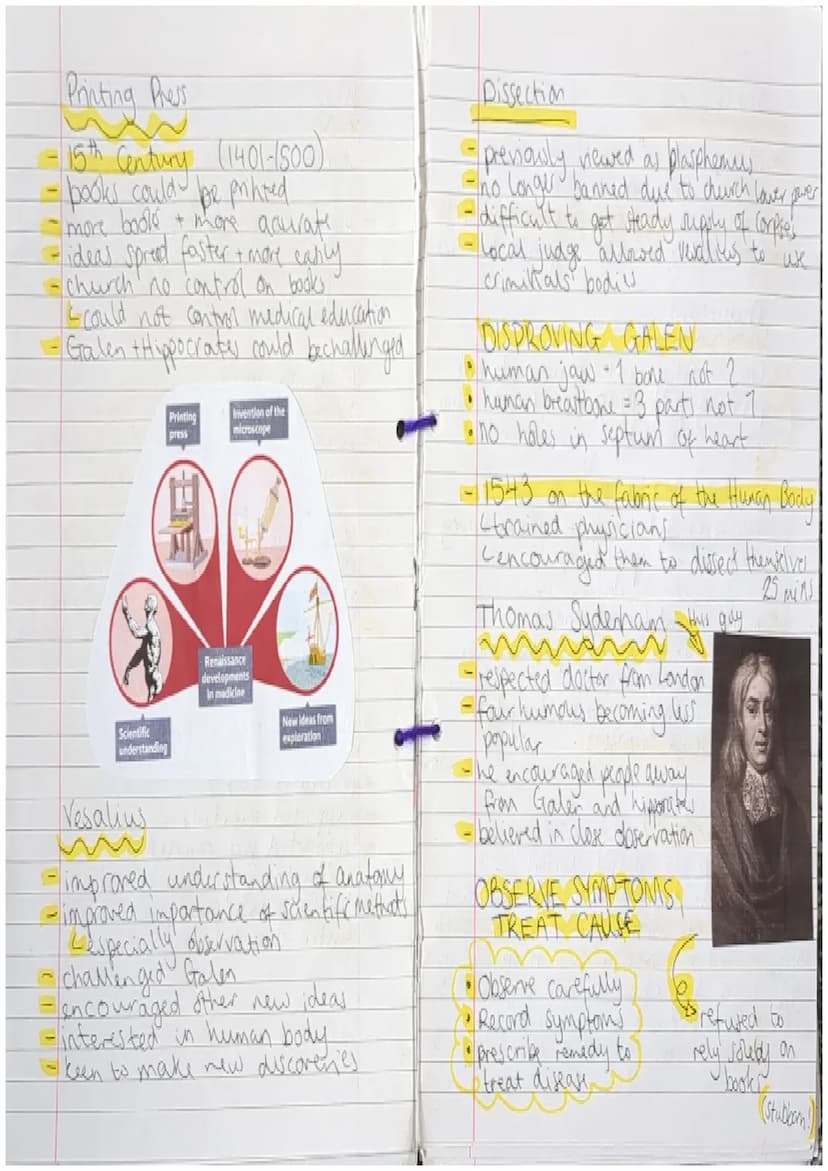 Printing Press
- 15th Century (1401-1500)
- books could be printed
- more books + more acurate
- ideas spread faster + more easily
- church no control on books
↳ could not control medical education
- Galen + Hippocrates could be challenged
Printing
press
Invention of the
microscope
Renaissance
developments
in medicine
Scientific
understanding
New ideas from
exploration
Vesalius
- improved understanding of anatomy
- improved importance of scientific methods
↳ especially observation
- challenged Galen
- encouraged other new ideas
- interested in human body
- keen to make new discoveries
Dissection
- previously viewed as blasphemus
- no longer banned due to church lower power
- difficult to get steady supply of corpses
- local judge allowed vesalius to use
criminals' bodies
DISPROVING GALEN
• human jaw = 1 bone not 2
• human breastbone = 3 parts not 7
• no holes in septum of heart
- 1543 on the fabric of the Human Body
↳ trained physicians
↳ encouraged them to dissect themselves
25 mins
Thomas Syderham this guy
- respected doctor from London
- four humous becoming less
popular
- he encouraged people away
from Galen and hipporates
- believed in close observation
OBSERVE SYMPTOMS,
TREAT CAUSE
• Observe carefully
• Record symptoms
• prescribe remedy to
treat disease
refused to
rely solely on
books
(stubborn!)